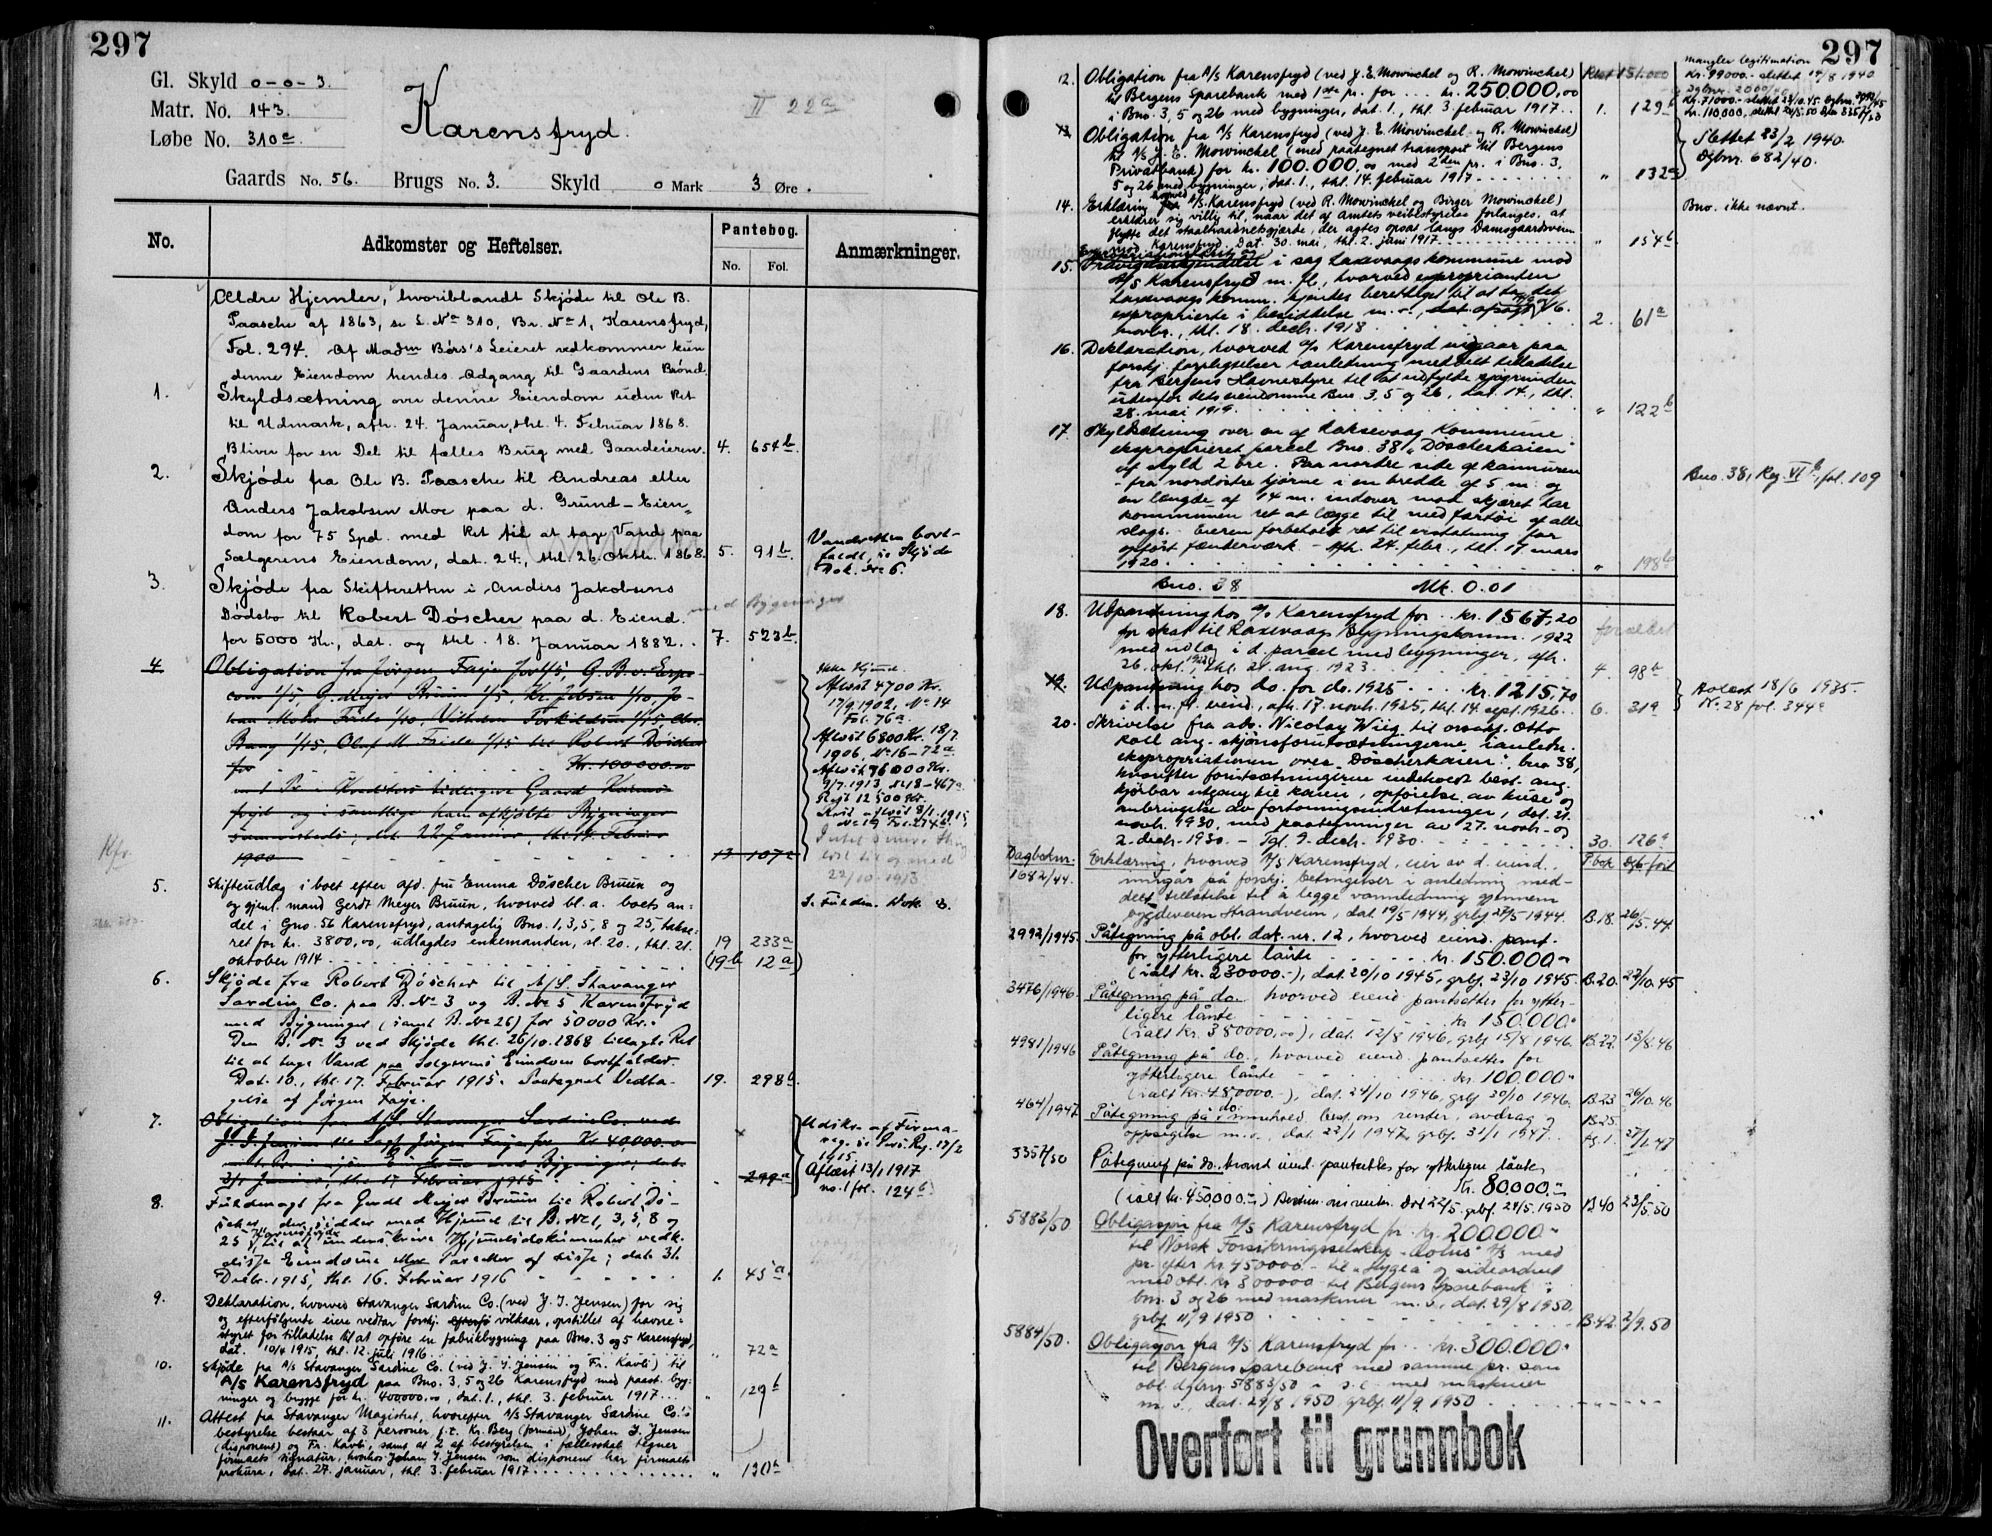 297
Gl. Skyld 0-0-3.
Matr. No. 143.
Løbe No. 310a
Karensfryd.
II 22a
Gaards No. 56. Brugs No. 3. Skyld 0 Mark 3 Øre.
No. Adkomster og Heftelser. Pantebog. No. Fol. Anmærkninger.
Ældre Hjemler, hvoriblandt Skjøde til Ole B.
Paasche af 1863, se L. No 310, Br. No 1, Karensfryd,
Fol. 294. Af Madm Børs's Leieret vedkommer kun
denne Eiendom hendes Adgang til Gaardens Brønd.
1. Skyldsætning over denne Eiendom uden Ret
til Udmark, afh. 24. Januar, thl. 4. Februar 1868.
Bliver for en Del til fælles Brug med Gaardeieren. 4. 654b
2. Skjøde fra Ole B. Paasche til Andreas eller
Anders Jakobsen Moe paa d. Grund-Eien-
dom for 75 Spd. med Ret til at tage Vand paa
Sælgerens Eiendom, dat. 24., thl. 26. Oktbr. 1868. 5. 91b
Vandretten bort-
faldt, se Skjøde
Dok. No 6.
3. Skjøde fra Skifteretten i Anders Jakobsens
Dødsbo til Robert Döscher paa d. Eiend. med Bygninger
for 5000 Kr., dat. og thl. 18. Januar 1882. 7. 523b
4. Obligation fra Jørgen Faye for 1/5, G. B. v. Erpe-
com 1/5, G. Meyer Bruun 1/5, Kr. Jebsen 1/10, Jo-
han Mohr Friele 1/10, Vilhelm Torkildsen 1/15, Chr.
Bang 1/15, Olaf M. Friele 1/15 til Robert Döscher
for Kr. 100000.00
m. 1 Pr. i Kreditors tidligere Gaard Karens-
fryd og i samtlige ham afkjøbte Bygninger
sammesteds; dat. 22 Januar, thl. Februar
1900 13 107a
Ikke Hjemel.
Aflæst 4700 Kr.
17/9 1902, No 14
Fol. 76a.
Aflæst 6800 Kr. 18/7
1906, No 16-72a
Aflæst 76000 Kr.
9/7 1913, No 18-467a
Rest 12500 Kr.
Kvit. aflæst 8/1 1915,
No 19 Fol. 274b.
22/10-1913
5. Skifteudlæg i boet efter afd. fru Emma Döscher Bruun og
og gjenl. mand Gerdt Meyer Bruun, hvorved bl. a. boets an-
del i Gno. 56 Karensfryd, antagelig Bnos. 1, 3, 5, 8 og 25, takse-
ret for kr. 3800,00, udlagdes enkemanden, sl. 20., thl. 21.
oktober 1914 19 233a
(19b 12a)
Se Fuldm. Dok. 8.
6. Skjøde fra Robert Döscher til A/S. Stavanger
Sardin Co. paa B. No 3 og B. No 5 Karensfryd
med Bygninger (samt B. No 26) for 50000 Kr.
Den B. No 3 ved Skjøde thl. 26/10. 1868 tillagte Ret
til at tage Vand paa Sælgerens Eiendom bortfalder.
Dat. 10., thl. 17. Februar 1915. Paategnet Vedta-
gelse af Jørgen Faye. 19. 298b.
7. Obligation fra A/S Stavanger Sardin Co. ved
J. I. Jensen til Sagf. Jørgen Faye for Kr 40,000.00
m. 1. Pr. i ejen. Eiendomme med Bygninger, dat.
31/ Januar, thl. 17 Februar 1915 299a
Udskr. af Firma-
reg. se Pers. Reg. 17/2
1915.
Aflæst 13/1 1917
no. 1 fol. 124b
8. Fuldmagt fra Gerdt Meyer Bruun til Robert Dö-
scher, der sidder med Hjemel til B. No 1, 3, 5, 8 og
25 Karensfryd, til at underskrive Hjemelsdokumenter vedk.
disse Eiendomme eller Parceller af disse; dat. 31.
Decbr. 1915, thl. 16. Februar 1916 1. 45a.
9. Deklaration, hvorved Stavanger Sardine Co. (ved J. I. Jensen) for sig
og efterfølgende eiere vedtar forskj. vilkaar, opstillet af havne-
styret for tilladelse til at opføre en fabrikbygning paa Bnos. 3 og 5 Karensfryd,
dat. 10/4 1915, thl. 12. juli 1916. „ 72a
10. Skjøde fra A/S Stavanger Sardine Co. (ved J. I. Jensen og Fr. Kavli) til
A/S Karensfryd paa Bnos. 3, 5 og 26 Karensfryd med paast. byg-
ninger og brygge for kr. 400,000.00, dat. 1., thl. 3. februar 1917. „ 129b
11. Attest fra Stavanger Magistrat, hvorefter A/S Stavanger Sardine Co.'s
bestyrelse bestaar af 3 personer, f.t. Kr. Berg (formand), Johan I. Jensen
(disponent) og Fr. Kavli, samt at 2 af bestyrelsen i fællesskab tegner
firmaets signatur, hvorhos Johan I. Jensen som disponent har firmaets
prokura, dat. 27. januar, thl. 3. februar 1917. „ 120b
297
12. Obligation fra A/S Karensfryd (ved J. E. Mowinckel og R. Mowinckel)
til Bergens Sparebank med 1ste pr. for kr. 250.000,00
i Bno. 3, 5 og 26 med bygninger, dat. 1., thl. 3. februar 1917. 1. 129b
mangler legitimation
Kr. 99000.- slettet 19/8 1940
kr. 110,000, slettet
13. Obligation fra A/S Karensfryd (ved J. E. Mowinckel og R. Mowinckel)
til A/S J. E. Mowinckel (med paategnet transport til Bergens
Privatbank) for kr. 100.000,00 med 2den pr. i Bno. 3,
5 og 26 med bygninger, dat. 1., thl. 14. februar 1917 „ 132a
Slettet 23/2 1940.
Dgbnr. 682/40.
14. Erklæring hvorved A/S. Karensfryd (ved R. Mowinckel og Birger Mowinckel)
erklærer sig villig til, naar det af amtets veibestyrelse forlanges, at
flytte det staaltraadnetsgjærde, der agtes opsat langs Damsgaardsveien
mod Karensfryd. Dat. 30. mai, thl. 2. juni 1917 „ 154b
Bno. ikke nævnt.
15. i sag Laxevaags kommune mod
A/S Karensfryd m. fl., hvorved exproprianten
Laxevaags komm. kjendes berettiget til at ta det
exproprierte i besiddelse m. v., 16.
novbr., thl. 18. decbr. 1918 2. 61a
16. Deklaration, hvorved A/S Karensfryd indgaar paa
forskj. forpligtelser i anledning meddelt tilladelse
fra Bergens Havnestyre til at udfylde sjøgrunden
udenfor dets eiendomme Bno. 3, 5 og 26, dat. 14., thl.
28. mai 1919. „ 122b
17. Skyldsætning over en af Laksevaag Kommune
eksproprieret parcel Bno. 38 „Døscherkaien"
af skyld 2 øre. Paa nordre side af kaimuren
- fra nordøstre hjørne i en bredde af 5 m. og
en længde af 14 m. indover mod skjæret har
kommunen ret at lægge til med fartøi af alle
slags. Eieren forbeholdt ret til erstatning for
opført fenderværk - Afh. 24. febr., thl. 17 mars
1920. „ 198b
Bno. 38, Reg VIb, fol. 109
Bno. 38 Mk. 0.01
18. Utpantning hos A/S Karensfryd for kr. 1567,20
for skat til Laxevaag Bygningskomm. 1922
med utlæg i d. parcel med bygninger, afh.
26. okt. 1922, thl. 21. aug. 1923. 4. 98b
forældet
19. Utpantning hos do. for do. 1925 kr. 1215,70
i d. m. fl. eiend., afh. 17. novb. 1925, thl. 14. sept. 1926. 6. 31a
Avlæst 18/6 1935.
No. 28 fol. 344a
20. Skrivelse fra adv. Nicolay Wiig til orsakf. Otto
Roll ang. skjønsforutsætningerne i anledn.
ekspropriationen over „Døscherkaien", bno 38,
hvorefter forutsætningerne indeholdt best. ang.
kjørbar utgang til kaien, opførelse av huse og
anbringelse av fortøiningsindretninger, dat. 21.
novb. 1930, med paategninger av 27. novb. og
2. decb. 1930. - Tgl. 9. decb. 1930 30. 126a
Dagboknr.
1682/44. Erklæring, hvorved A/S Karensfryd, eier av d. eiend.
inngår på forskj. betingelser i anledning med-
delt tillatelse til å legge vannledning gjennem
bygdeveien Strandveien, dat. 19/5 1944, grbf. 27/5 1944. B.18. 26/5.44
2992/1945. Påtegning på obl. dok. nr. 12, hvorved eiend. pants.
for ytterligere lånte kr. 150.000.-
(ialt kr. 230000.-), dat. 20/10 1945, grbf. 23/10 1945. B.20. 22/10.45
3476/1946. Påtegning på do. hvorved eiend. pantsettes for ytter-
ligere lånte kr. 150.000.-
(ialt kr. 380000,00), dat. 12/8 1946, grbf. 15/8 1946. B.22. 13/8.46
4981/1946 Påtegning på do., hvorved eiend. pantsettes for
ytterligere lånte kr. 100.000.-
(ialt kr. 480000.-), dat. 24/10 1946, grbf. 30/10 1946. B.23 26/10.46
464/1947 Påtegning på do. inneholt. best. om renter, avdrag og
oppsigelse m. v., dat. 22/1 1947, grbf. 31/1 1947. B.25 27/1.47
3357/50 Påtegning på do. hvorved eiend. pantsettes for ytterligere lånte
Kr. 80.000.-
(ialt kr. 450.000.-) Bestem. om renter. Dat. 22/5. grbf. 24/5. 1950 B.40 23/5.50
5883/50 Obligasjon fra A/S Karensfryd for kr. 200.000.-
til Norsk Forsikringsselskap „Æolus" A/S med
pr. efter kr. 450000.- til „Hygea" og sideordnet
med obl. kr 300000 til Bergens Sparebank i
bnr. 3 og 26 med maskiner m. v., dat. 29/8 1950,
grbf. 11/9 1950 B.42. 2/9.50
5884/50. Obligasjon fra A/S Karensfryd for kr. 300.000.-
til Bergens Sparebank med samme pr. som
obl. dgbnr. 5883/50 med maskiner
m. v., dat. 29/8 1950, grbf. 11/9 1950
Overført til grunnbok